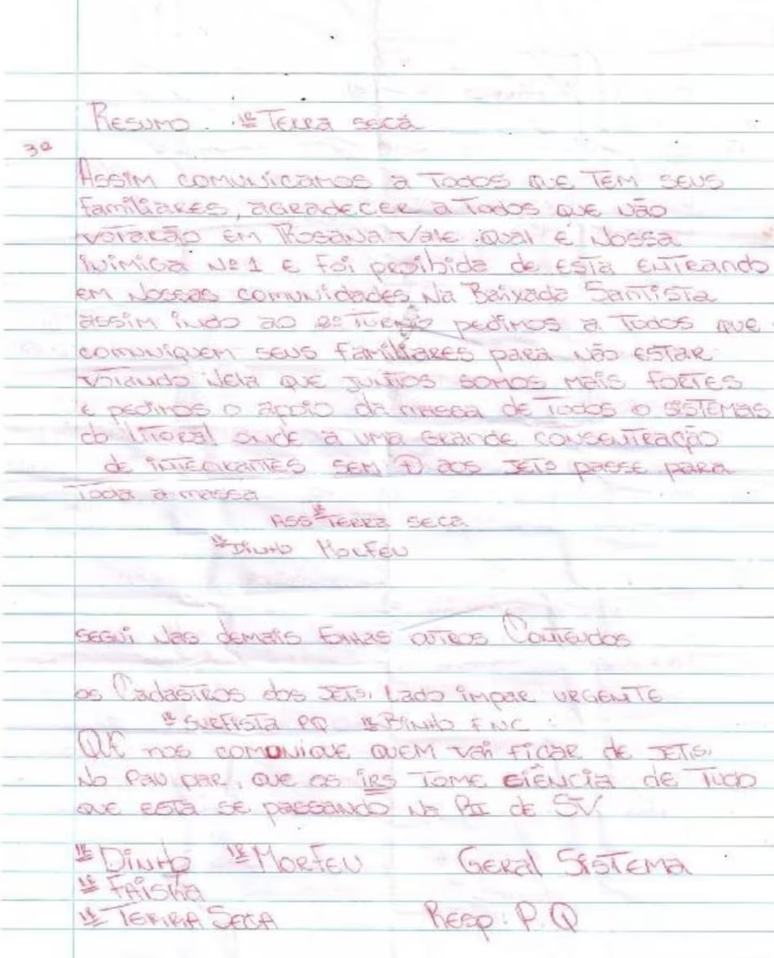 Resumo. Iº Terra seca
3º
Assim comunicamos a Todos que TEM SEUS
familiares, agradecer a Todos que não
votarão em Rosana Vale qual é Nossa
inimiga Nº 1 e foi proibida de esta entrando
em Nossas comunidades Na Baixada Santista
assim indo ao 2º Turno pedimos a Todos que
comuniquem seus familiares para não estar
votando Nela que juntos somos mais fortes
e pedimos o apoio da massa de Todos o sistemas
do litoral onde a uma grande consentração
de integrantes sem aos Jets passe para
Toda a massa
Ass Iº Terra seca
Iº Dinho Morfeu
segui nas demais outros Conteudos
os Cadastros dos Jets, Lado impar urgente
Iº Surfista PQ Iº Binho FNC
QUE nos comunique quem vai ficar de Jets,
No Pav par, que os irs Tome ciência de Tudo
que esta se passando na PII de SV.
Iº Dinho Iº Morfeu Geral Sistema
Iº Faiska
Iº Terra Seca Resp: P.Q